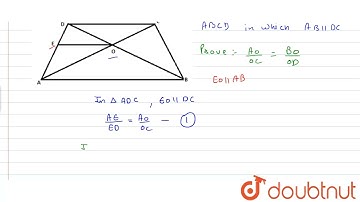 ABCD in which AB || DC
Prove :- AO/OC = BO/OD
EO || AB
D
E
O
A
B
In △ ADC , EO || DC
AE/ED = AO/OC — ①
I
doubtnut